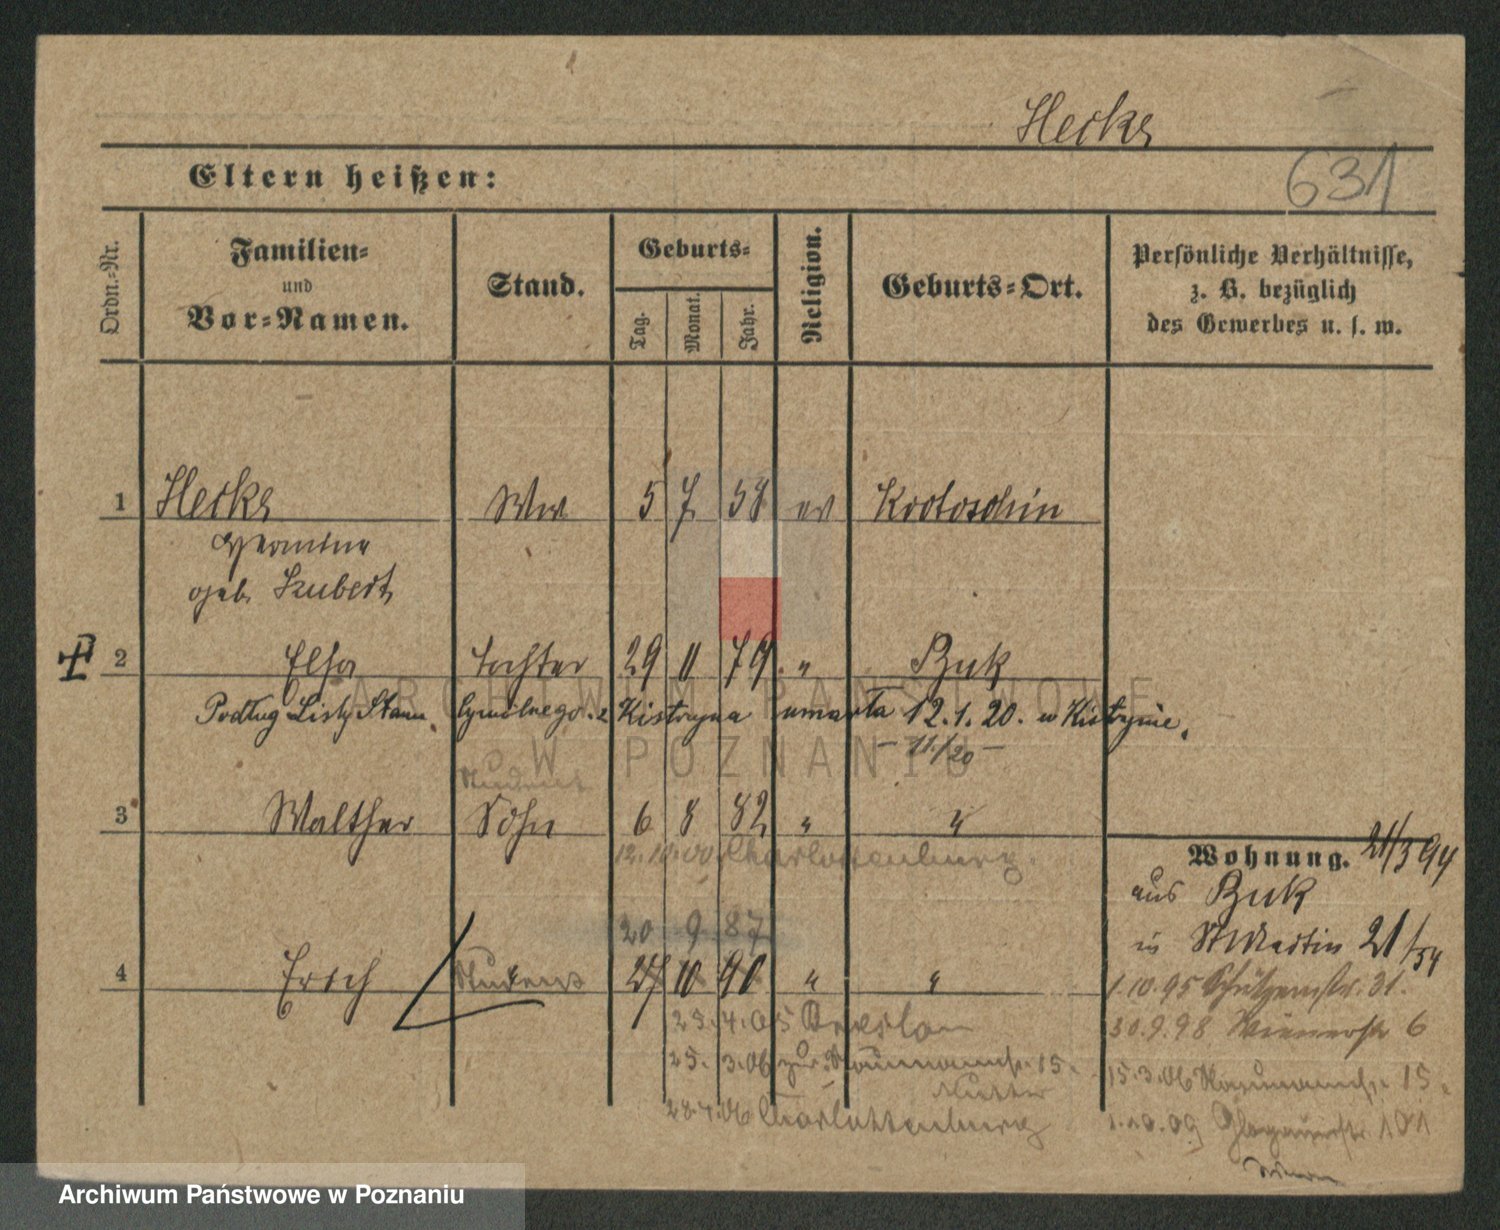 Hecke
631
Eltern heißen:
Ordn.-Nr.
Familien-
und
Vor-Namen.
Stand.
Geburts-
Tag.
Monat.
Jahr.
Religion.
Geburts-Ort.
Persönliche Verhältnisse,
z. B. bezüglich
des Gewerbes u. s. w.
1 Hecke Ww 5 7 58 ev Krotoschin
Hermine
geb. Kubert
2 Elsa Tochter 29 11 79 " Buk
Podług Listy Stanu Cywilnego z Kistrzyna umarła 12.1.20. w Kistrzynie.
- 11./20 -
Student
3 Walther Sohn 6 8 82 " "
12.10.00 Charlottenburg.
20 9 87
4 Erich Student 27 10 90 " "
23.4.05 Breslau
25.3.06 zur Naumannstr. 15.
Mutter
28.4.06 Charlottenburg
Wohnung. 21/3 94
aus Buk
in St Martin 21/54
1.10.95 Schützenstr. 31.
30.9.98 Wienerstr 6
15.3.06 Naumannstr. 15.
1.10.09 Glogauerstr. 101
ARCHIWUM PAŃSTWOWE
W POZNANIU
Archiwum Państwowe w Poznaniu